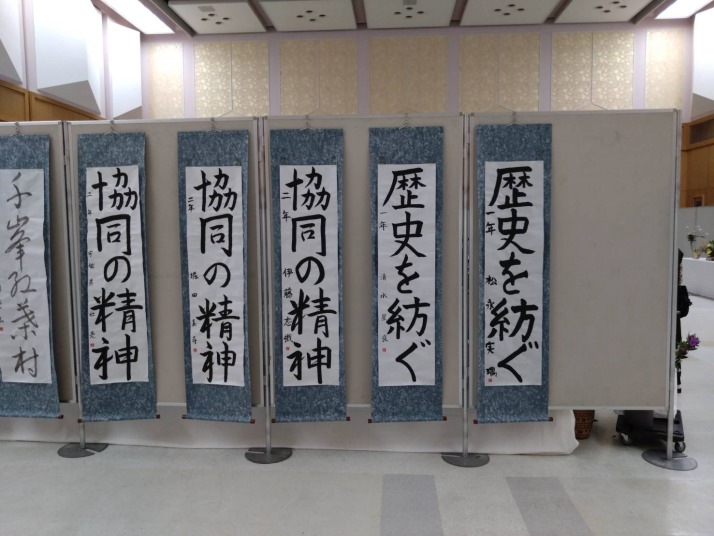 歴史を紡ぐ
一年 松永実璃
歴史を紡ぐ
一年 清水
協同の精神
二年 伊藤
協同の精神
二年 堀田
協同の精神
二年
千峯
葉村